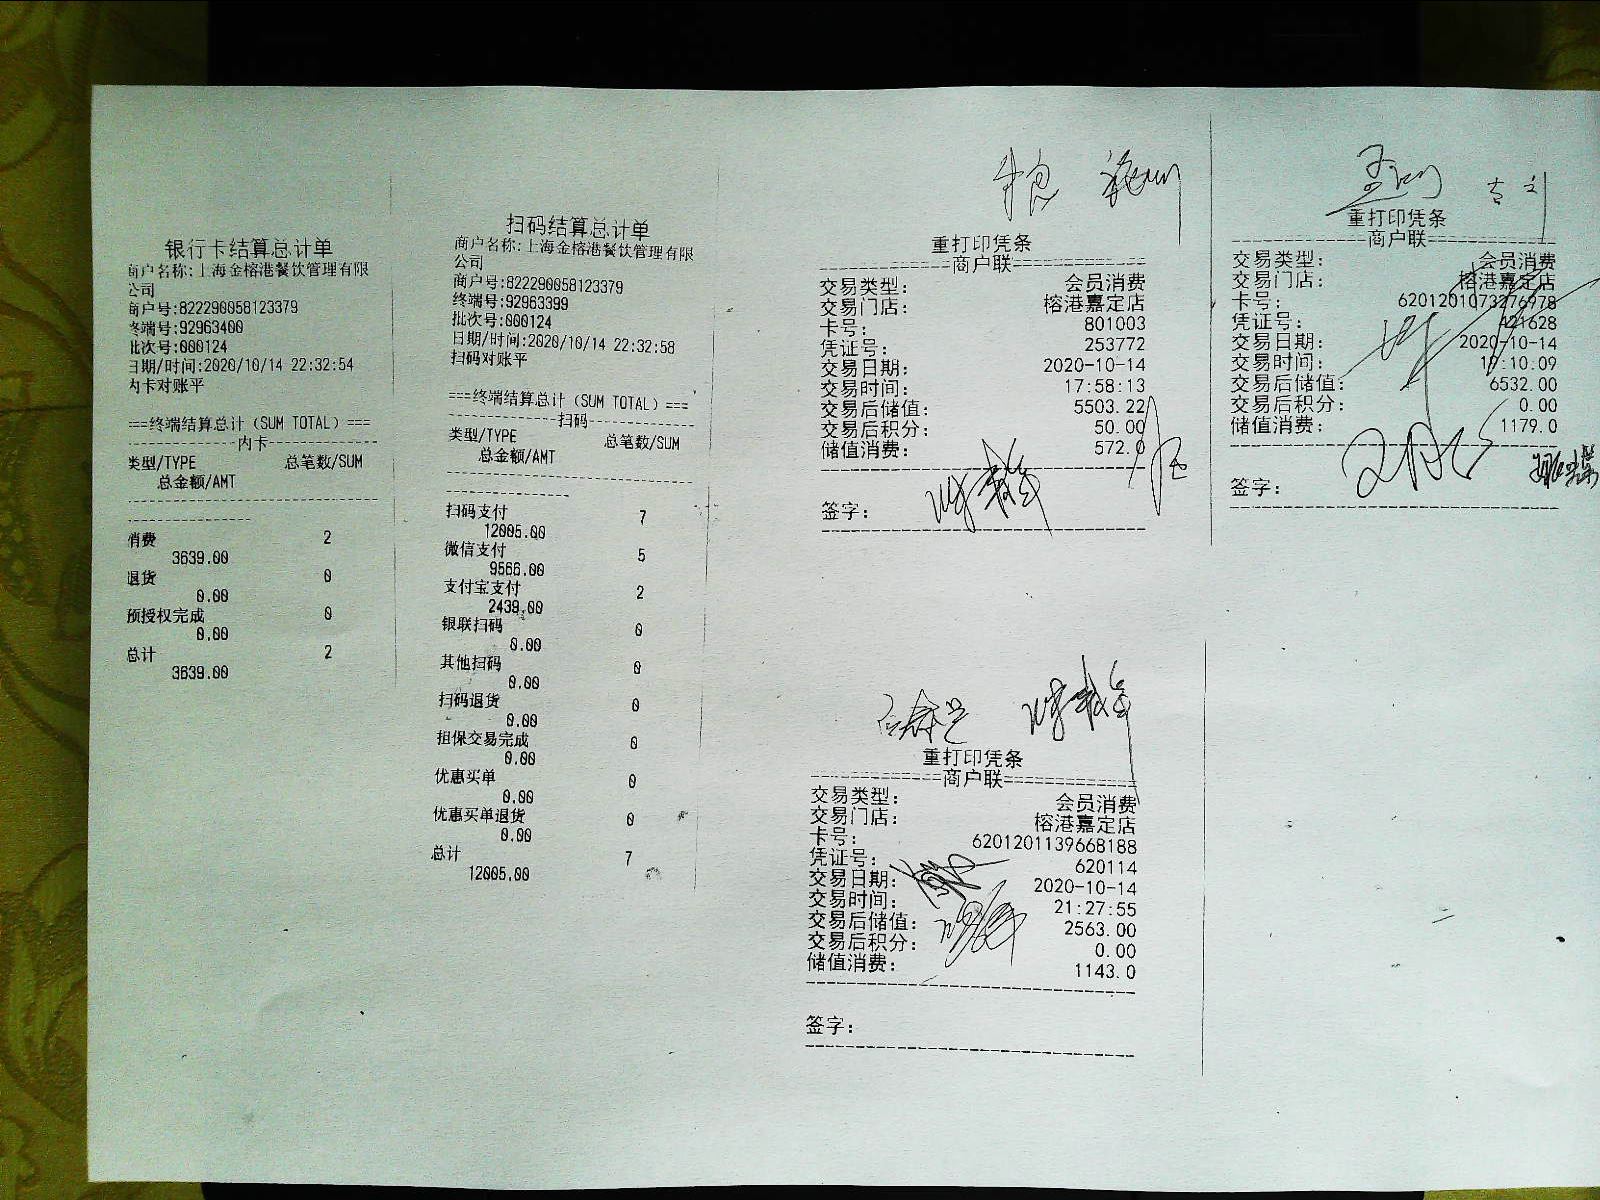 银行卡结算总计单
商户名称:上海金榕港餐饮管理有限
公司
商户号:822290058123379
终端号:92963400
批次号:000124
日期/时间:2020/10/14 22:32:54
内卡对账平
===终端结算总计(SUM TOTAL)===
内卡
类型/TYPE 总笔数/SUM
总金额/AMT
消费 2
3639.00
退货 0
0.00
预授权完成 0
0.00
总计 2
3639.00
扫码结算总计单
商户名称:上海金榕港餐饮管理有限
公司
商户号:822290058123379
终端号:92963399
批次号:000124
日期/时间:2020/10/14 22:32:58
扫码对账平
===终端结算总计(SUM TOTAL)===
扫码
类型/TYPE 总笔数/SUM
总金额/AMT
扫码支付 7
12005.00
微信支付 5
9566.00
支付宝支付 2
2439.00
银联扫码 0
0.00
其他扫码 0
0.00
扫码退货 0
0.00
担保交易完成 0
0.00
优惠买单 0
0.00
优惠买单退货 0
0.00
总计 7
12005.00
重打印凭条
商户联
交易类型: 会员消费
交易门店: 榕港嘉定店
卡号: 801003
凭证号: 253772
交易日期: 2020-10-14
交易时间: 17:58:13
交易后储值: 5503.22
交易后积分: 50.00
储值消费: 572.0
签字:
重打印凭条
商户联
交易类型: 会员消费
交易门店: 榕港嘉定店
卡号: 6201201073276978
凭证号: 421628
交易日期: 2020-10-14
交易时间: 19:10:09
交易后储值: 6532.00
交易后积分: 0.00
储值消费: 1179.0
签字:
重打印凭条
商户联
交易类型: 会员消费
交易门店: 榕港嘉定店
卡号: 6201201139668188
凭证号: 620114
交易日期: 2020-10-14
交易时间: 21:27:55
交易后储值: 2563.00
交易后积分: 0.00
储值消费: 1143.0
签字: